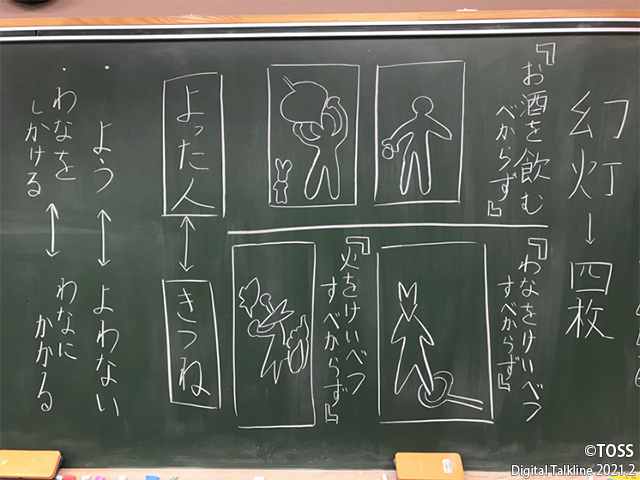 幻灯→四枚
『お酒を飲む
べからず』
『わなをけいべつ
すべからず』
『火をけいべつ
すべからず』
よった人
↕
きつね
・よう ↔ よわない
・わなを
しかける
↔
わなに
かかる
©TOSS
Digital Talkline 2021.2